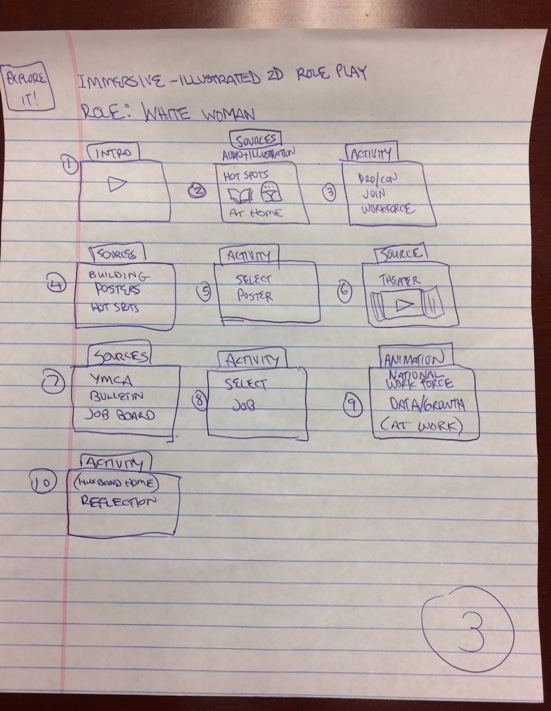 EXPLORE
IT!
IMMERSIVE - ILLUSTRATED 2D ROLE PLAY
ROLE: WHITE WOMAN
1
INTRO
2
SOURCES
AUDIO+ILLUSTRATION
HOT SPOTS
AT HOME
3
ACTIVITY
PRO/CON
JOIN
WORKFORCE
4
SOURCES
BUILDING
POSTERS
HOT SPOTS
5
ACTIVITY
SELECT
POSTER
6
SOURCE
THEATER
7
SOURCES
YMCA
BULLETIN
JOB BOARD
8
ACTIVITY
SELECT
JOB
9
ANIMATION
NATIONAL
WORK FORCE
DATA/GROWTH
(AT WORK)
10
ACTIVITY
(HUSBAND HOME)
REFLECTION
3